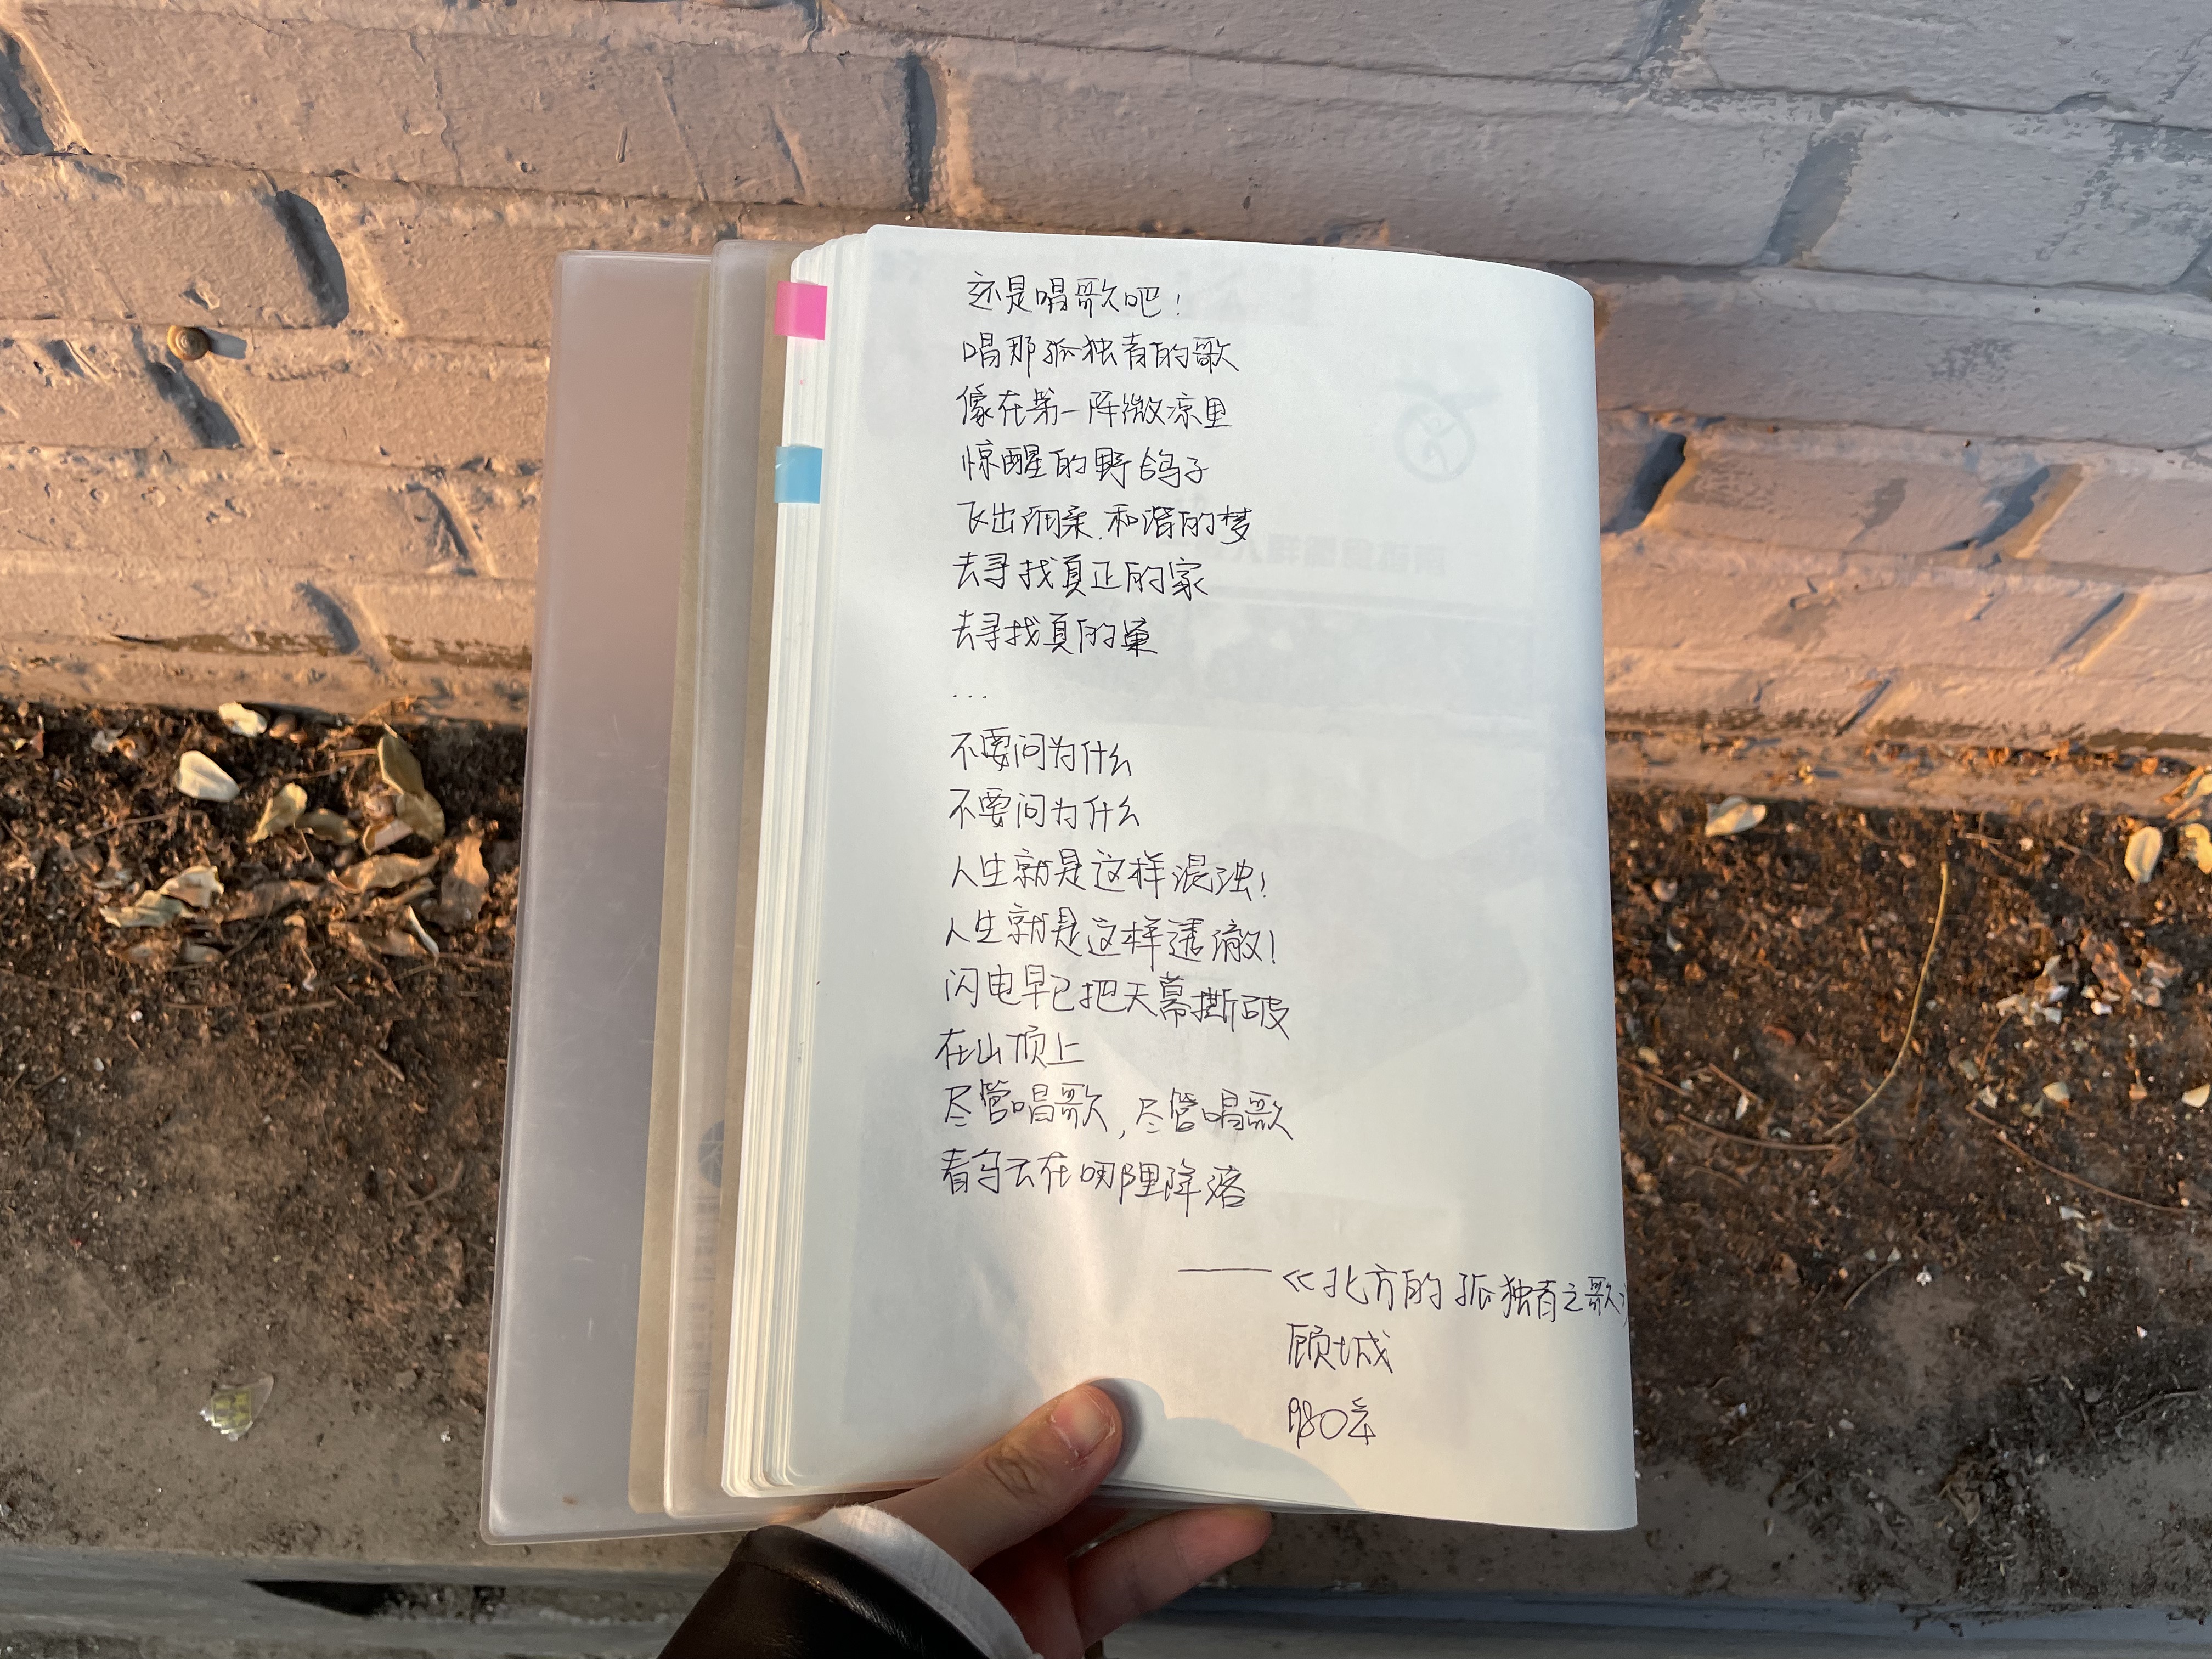 还是唱歌吧！
唱那孤独者的歌
像在第一阵微凉里
惊醒的野鸽子
飞出润柔、和谐的梦
去寻找真正的家
去寻找真的巢
...
不要问为什么
不要问为什么
人生就是这样混浊！
人生就是这样透澈！
闪电早已把天幕撕破
在山顶上
尽管唱歌，尽管唱歌
看乌云在哪里降落
——《北方的孤独者之歌》
顾城
1980年